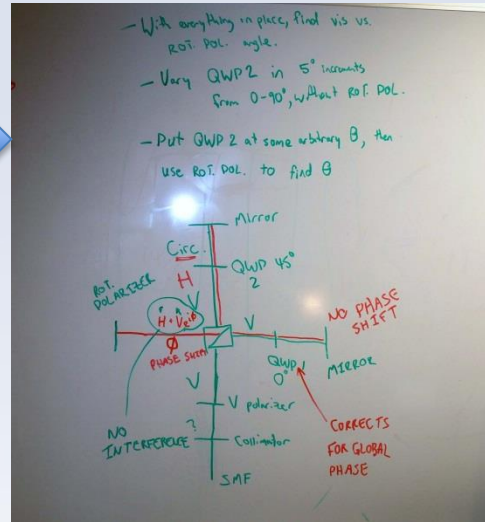 - With everything in place, find vis vs.
ROT. POL. angle.
- Vary QWP2 in 5° increments
from 0-90°, without ROT. POL.
- Put QWP 2 at some arbitrary θ, then
use ROT. POL. to find θ
Mirror
Circ.
QWP 45°
2
H
ROT.
POLARIZER
V
H + Ve^iφ
V
NO PHASE
SHIFT
Ø
PHASE SHIFT
QWP 1
0°
MIRROR
V
V polarizer
NO
INTERFERENCE?
Collimator
CORRECTS
FOR GLOBAL
PHASE
SMF